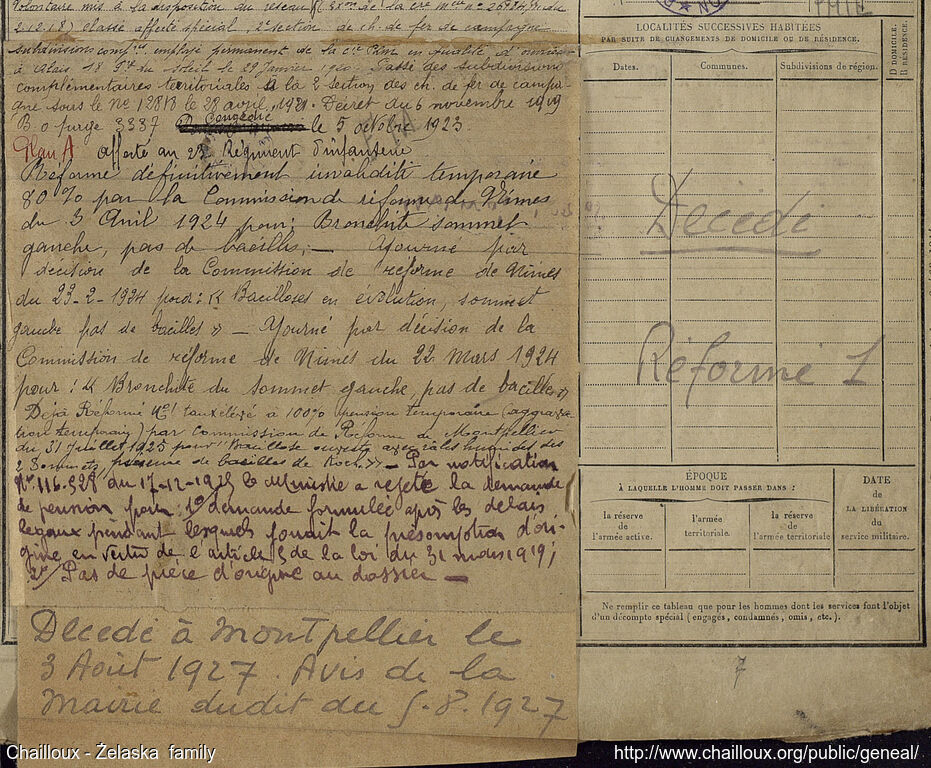 volontaire mis à la disposition du réseau
2.12.18) classé affecté spécial, 2e section de ch. de fer de campagne
subdivisions compres employé permanent de la Cie PLM en qualité d'
à Alais 18 du Soleil le 29 Janvier 1920. Passé des subdivisions
complémentaires territoriales à la 2 section des ch. de fer de campa
gne sous le No 12818 le 28 avril 1921. Décret du 6 novembre 1919
B.o purge 3387 Congédié le 5 octobre 1923.
Plan A affecté au 22e Régiment d'infanterie
Réformé définitivement invalidité temporaire
80% par la Commission de réforme de Nîmes
du 3 Avril 1924 pour: Bronchite sommet
gauche, pas de bacilles. — Ajourné par
décision de la Commission de réforme de Nîmes
du 23-2-1924 pour: « Bacilloses en évolution, sommet
gauche pas de bacilles » — Ajourné par décision de la
Commission de réforme de Nimes du 22 Mars 1924
pour: « Bronchite du sommet gauche, pas de bacilles »
Déjà Réformé No1 taux élevé à 100% pension temporaire (aggrava
tion temporaire) par Commission de Réforme de Montpellier
du 31 juillet 1925 pour "Bacillose ouverte avec râles humides des
2 Sommets, présence de bacilles de Koch.» — Par notification
No 116.528 du 17-12-1925 le Ministre a rejeté la demande
de pension pour: 1o demande formulée après les délais
légaux pendant lesquels jouait la présomption d'ori-
gine en vertu de l'article 5 de la loi du 31 mars 1919;
2o/ Pas de pièce d'origine au dossier —
Décédé à Montpellier le
3 Août 1927. Avis de la
Mairie dudit du 5-8-1927
LOCALITÉS SUCCESSIVES HABITÉES
PAR SUITE DE CHANGEMENTS DE DOMICILE OU DE RÉSIDENCE.
Dates. Communes. Subdivisions de région.
D DOMICILE.
R RÉSIDENCE.
Décédé
Réformé 1
ÉPOQUE
À LAQUELLE L'HOMME DOIT PASSER DANS :
la réserve de l'armée active.
l'armée territoriale.
la réserve de l'armée territoriale
DATE
de
LA LIBÉRATION
du
service militaire.
Ne remplir ce tableau que pour les hommes dont les services font l'objet
d'un décompte spécial (engagés, condamnés, omis, etc.).
7
Chailloux - Żelaska family
http://www.chailloux.org/public/geneal/